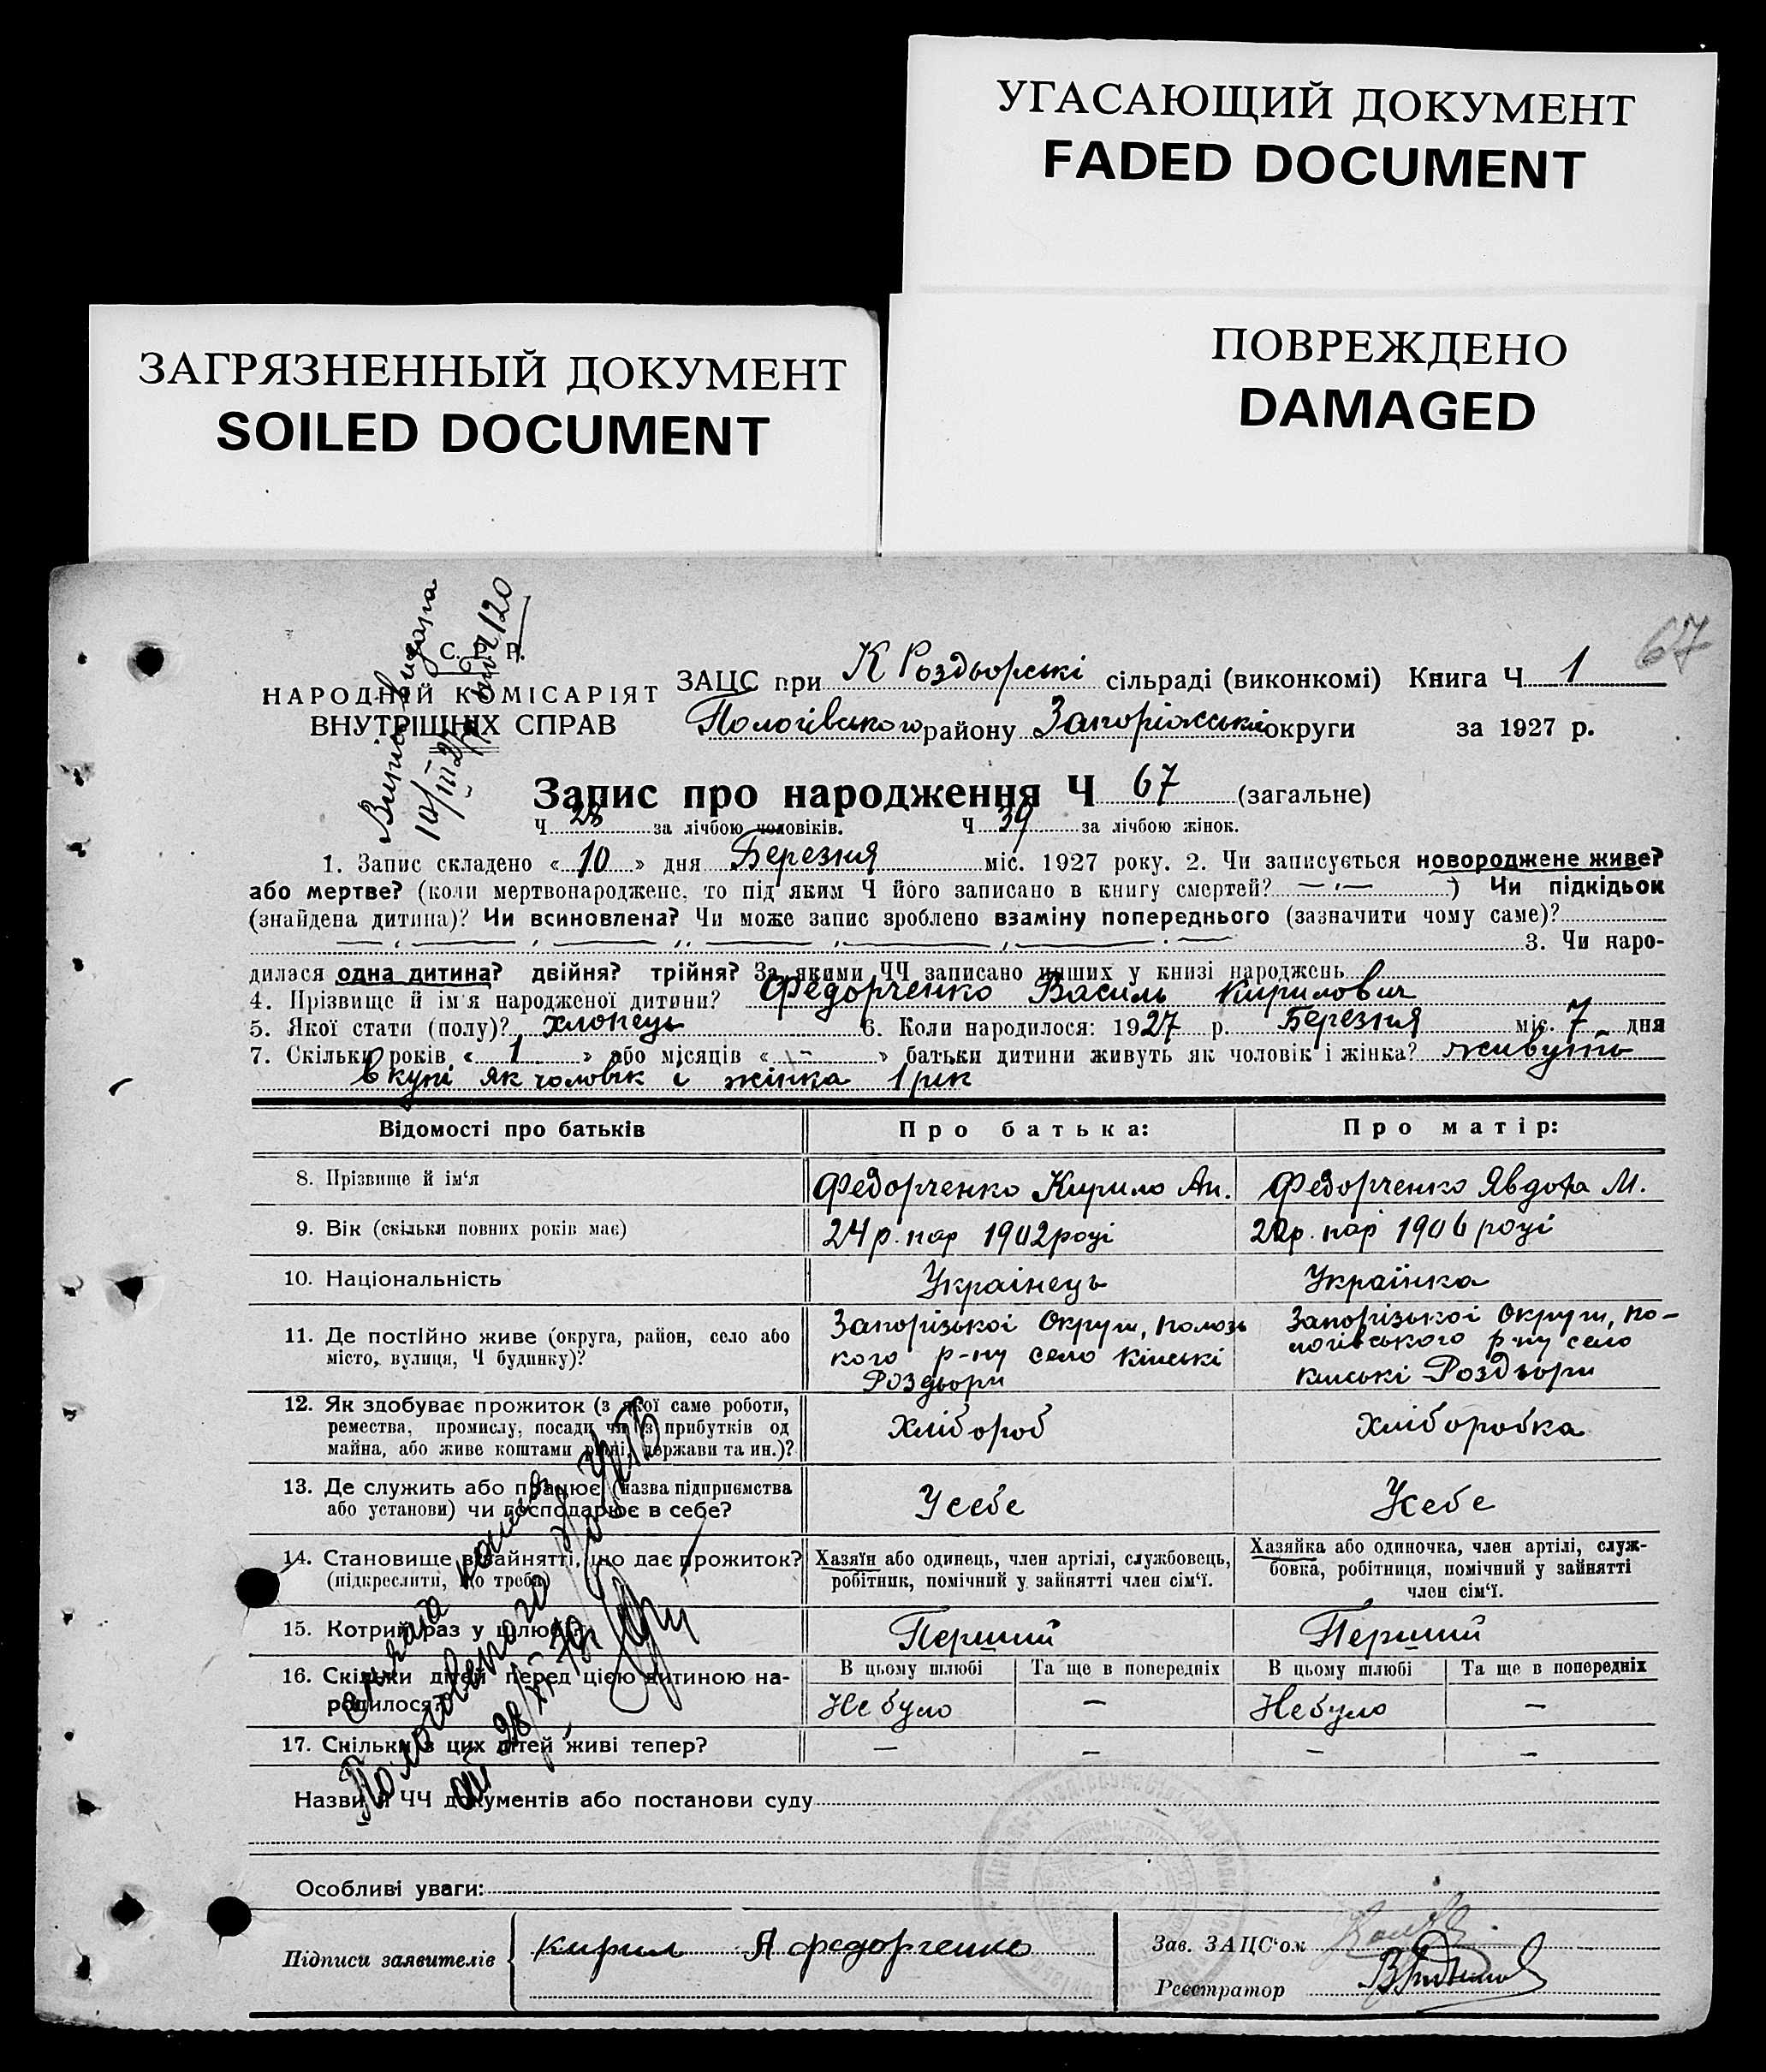 УГАСАЮЩИЙ ДОКУМЕНТ
FADED DOCUMENT
ПОВРЕЖДЕНО
DAMAGED
ЗАГРЯЗНЕННЫЙ ДОКУМЕНТ
SOILED DOCUMENT
67
С. Р. Р.
НАРОДНІЙ КОМІСАРІЯТ
ВНУТРІШНІХ СПРАВ
ЗАЦС при К Роздорські сільраді (виконкомі) Книга Ч 1
Пологівського району Запоріжські округи за 1927 р.
Запис про народження Ч 67 (загальне)
Ч 28 за лічбою чоловіків. Ч 39 за лічбою жінок.
1. Запис складено « 10 » дня Березня міс. 1927 року. 2. Чи записується новороджене живе?
або мертве? (коли мертвонароджене, то під яким Ч його записано в книгу смертей? ) Чи підкідьок
(знайдена дитина)? Чи всиновлена? Чи може запис зроблено взаміну попереднього (зазначити чому саме)?
3. Чи наро-
дилася одна дитина? двійня? трійня? За якими ЧЧ записано инших у книзі народжень
4. Прізвище й ім'я народженої дитини? Федорченко Василь Кирилович
5. Якої стати (полу)? хлопець 6. Коли народилося: 1927 р. Березня міс. 7 дня
7. Скільки років « 1 » або місяців « - » батьки дитини живуть як чоловік і жінка? живуть
вкупі як чоловік і жінка 1 рік
Відомості про батьків Про батька: Про матір:
8. Прізвище й ім'я Федорченко Кирило Ан. Федорченко Явдоха М.
9. Вік (скільки повних років має) 24 р. нар 1902 році 20 р. нар 1906 році
10. Національність Українець Українка
11. Де постійно живе (округа, район, село або місто, вулиця, Ч будинку)?
Запорізькоі Округи, Полозь
кого р-ну село Кінські
Роздори
Запорізькоі Округи, По-
логівського р-ну село
Кінські Роздори
12. Як здобуває прожиток (з якої саме роботи,
ремества, промислу, посади чи з прибутків од
майна, або живе коштами рідні, держави та ин.)?
Хлібороб Хліборобка
13. Де служить або працює (назва підприємства
або установи) чи господарює в себе?
У себе У себе
14. Становище в зайнятті, що дає прожиток?
(підкреслити, що треба)
Хазяїн або одинець, член артілі, службовець,
робітник, помічний у зайнятті член сім'ї.
Хазяйка або одиночка, член артілі, служ-
бовка, робітниця, помічний у зайнятті
член сім'ї.
15. Котрий раз у шлюбі? Перший Перший
16. Скільки дітей перед цією дитиною на-
родилося?
В цьому шлюбі Та ще в попередніх В цьому шлюбі Та ще в попередніх
Не було — Не було —
17. Скільки з цих дітей живі тепер? — — — —
Назви й ЧЧ документів або постанови суду
Особливі уваги:
Підписи заявителів Кирил А Федорченко
Зав. ЗАЦС'ом
Реєстратор